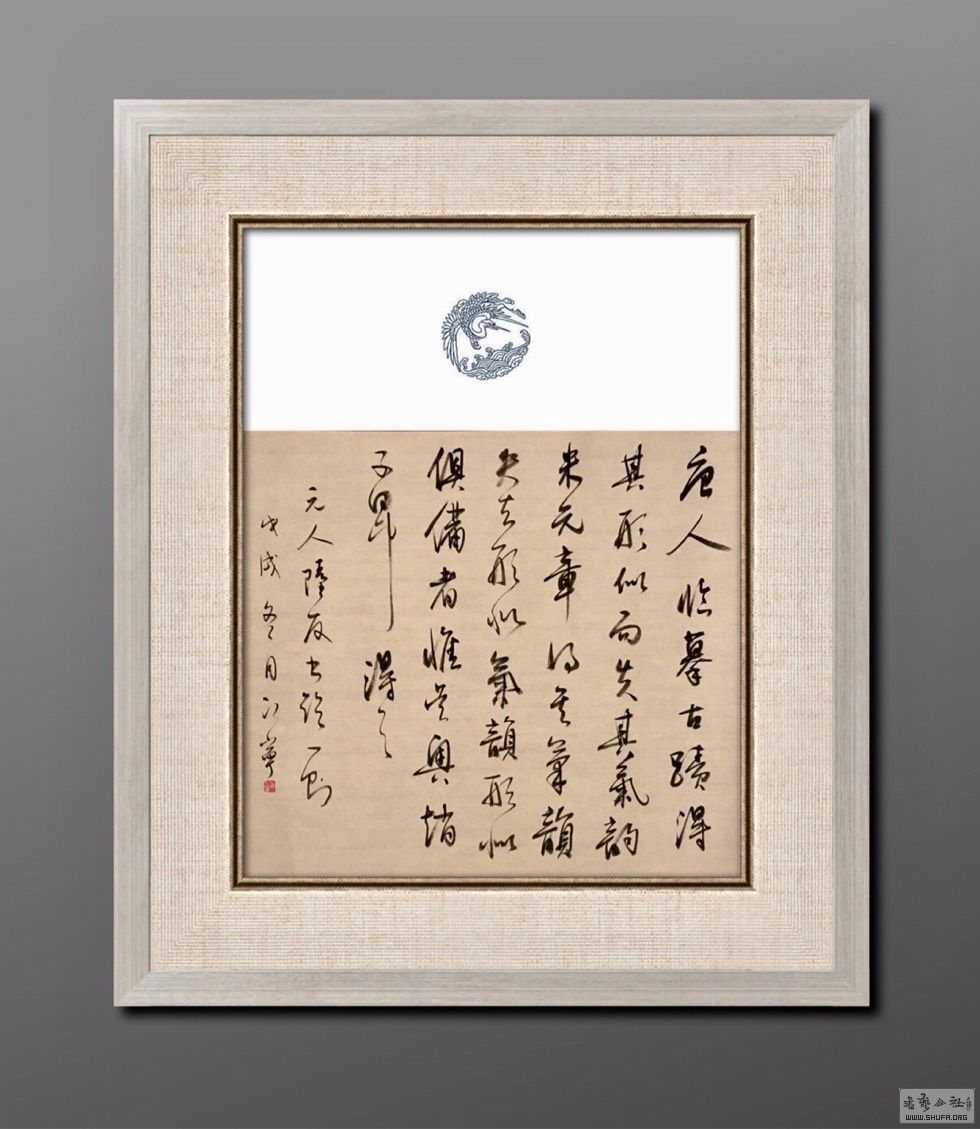 唐人临摹古蹟得
其形似而失其氣韵
米元章得其氣韻
失去形似氣韻形似
俱備者惟吴興趙
子昂得之
元人陸友書論一則
戊戌冬月
書藝公社
WWW.SHUFA.ORG